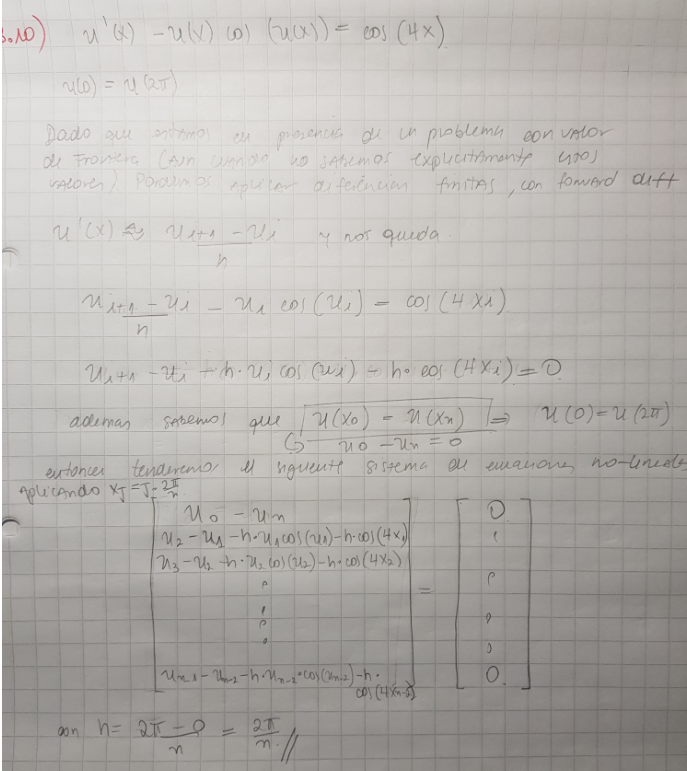 3.10) u'(x) - u(x) cos (u(x)) = cos (4x)
u(0) = u(2π)
Dado que estamos en presencia de un problema con valor
de Frontera (aun cuando no sabemos explicitamente estos
valores) Podemos aplicar diferencias finitas, con forward diff
u'(x) ≈ (u_{i+1} - u_i)/h y nos queda.
(u_{i+1} - u_i)/h - u_i cos (u_i) = cos (4x_i)
u_{i+1} - u_i - h·u_i cos (u_i) - h· cos (4x_i) = 0
ademas sabemos que u(x_0) - u(x_n) ⇒ u(0) = u(2π)
↳ u_0 - u_n = 0
entonces tendremos el siguente sistema de ecuaciones no-lineales
Aplicando x_J = J·2π/n
[ u_0 - u_n ] [ 0 ]
u_2 - u_1 - h·u_1 cos(u_1) - h·cos(4x_1)
u_3 - u_2 - h·u_2 cos(u_2) - h·cos(4x_2)
=
u_{n-1} - u_{n-2} - h·u_{n-2}·cos(u_{n-2}) - h· 0
cos(4x_{n-2})
con h = (2π - 0)/n = 2π/n //